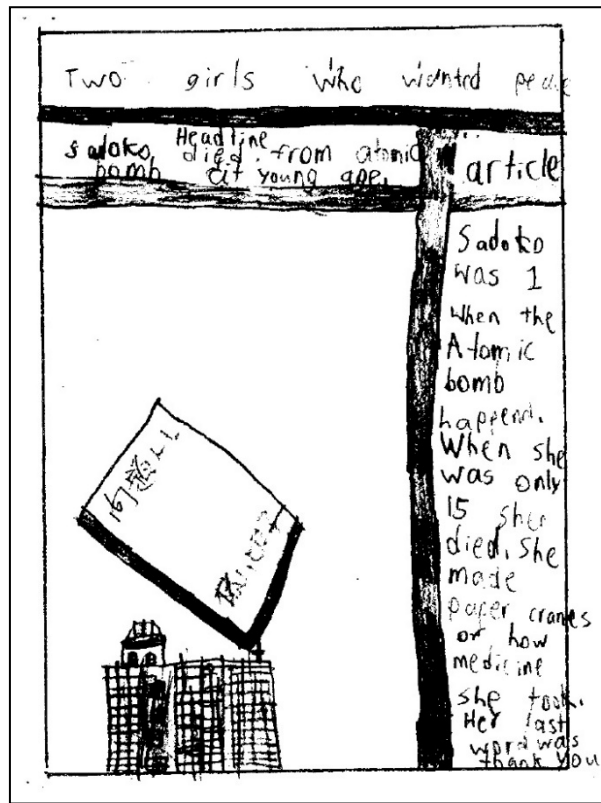 Two girls who wanted peace
Headline
sadoko, died. from atomic
bomb at young age.
article
Sadoko
was 1
when the
Atomic
bomb
happend.
When she
was only
15 sher
died. she
made
paper cranes
or how
medicine
she took.
Her last
word was
thank you